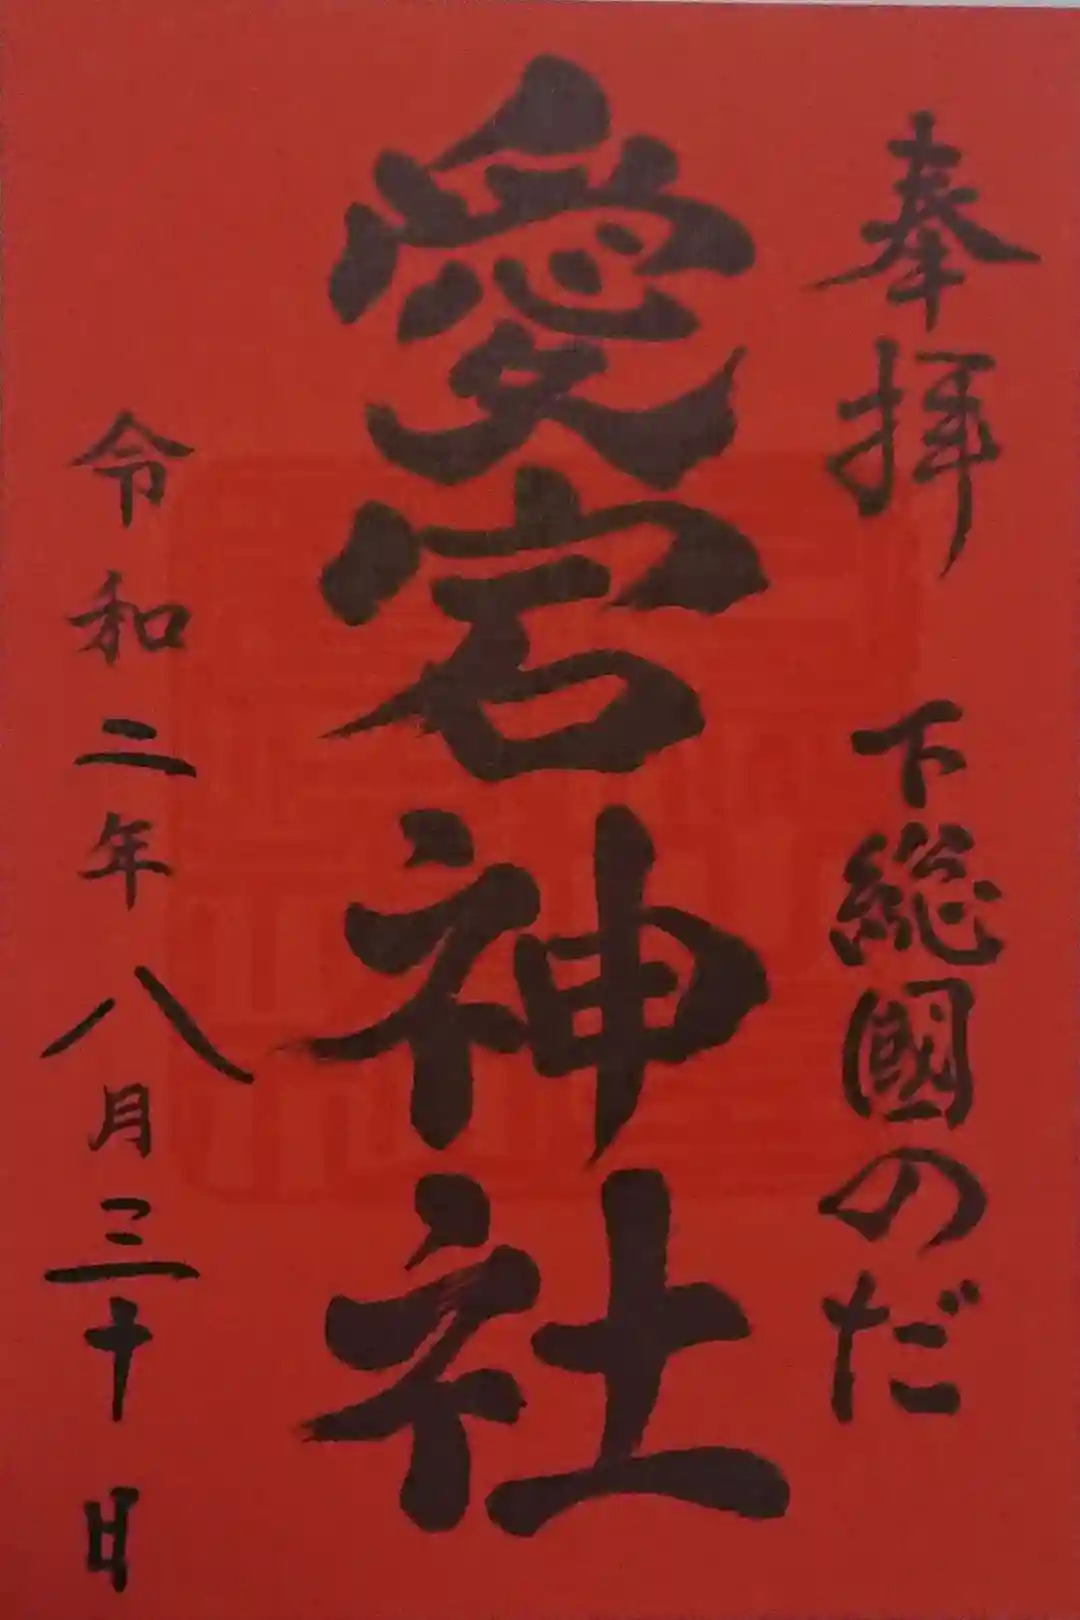 奉拝　下総國のだ
愛宕神社
令和二年八月三十日